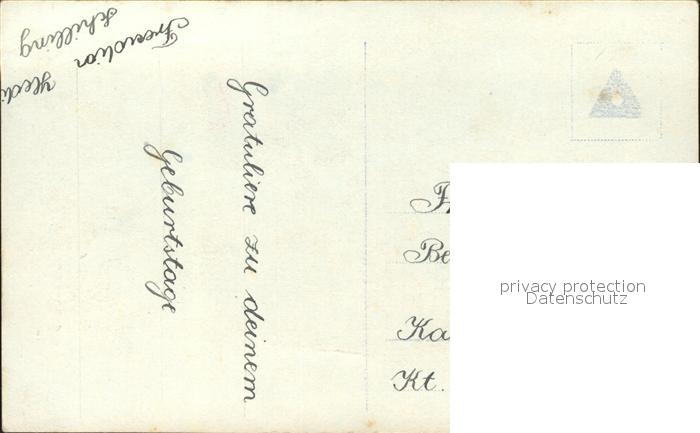 Gratuliere zu deinem
Geburtstage
Hedi
Schilling
Be
Ka
Kt.
privacy protection
Datenschutz